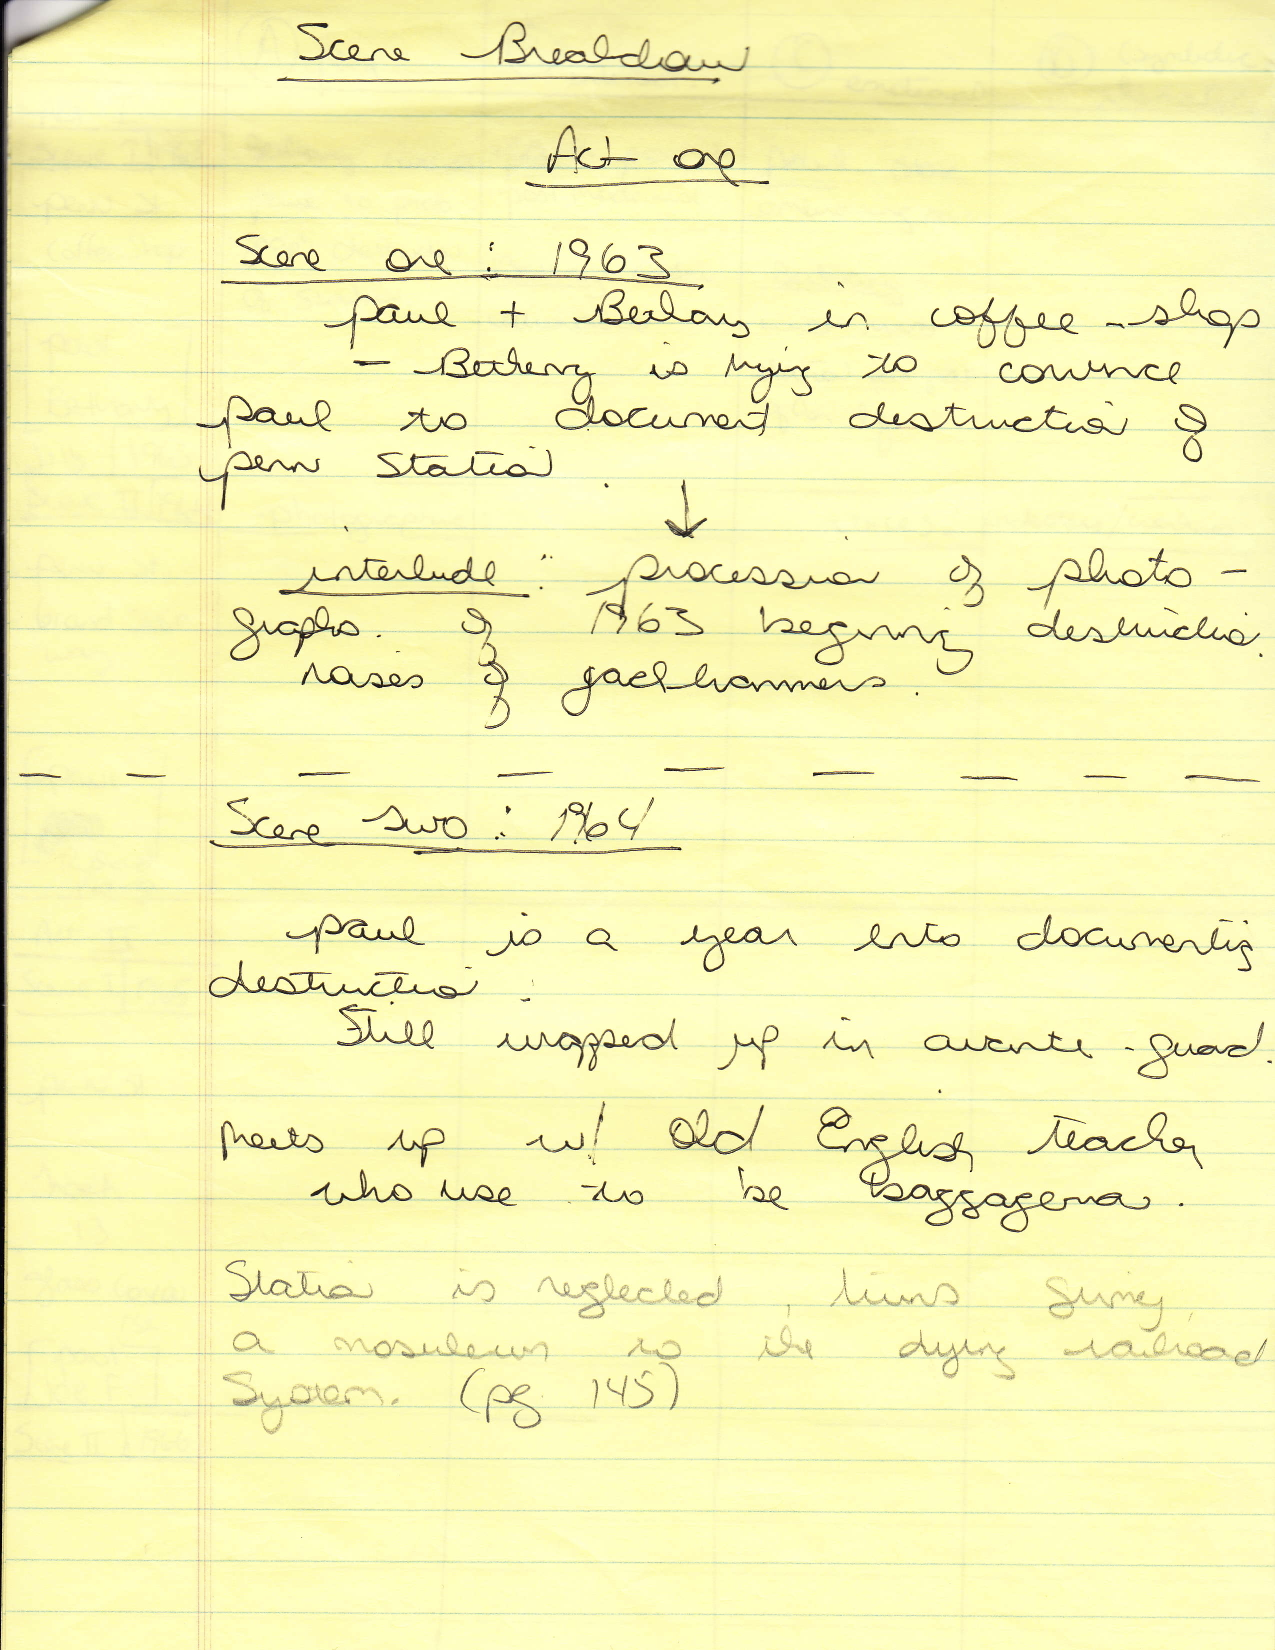 Scene Breakdown
Act one
Scene one: 1963
paul + Barbary in coffee-shop
- is trying to convince
paul to document destruction of
penn station.
interlude: procession of photo-
graphs. of 1963 beginning destruction.
noises of jackhammers.
Scene two: 1964
paul is a year into documenting
destruction.
Still wrapped up in avante-guard.
meets up w/ Old English teacher
who use to be baggageman.
Station is neglected,
a mosuleum to the dying railroad
System. (pg 145)